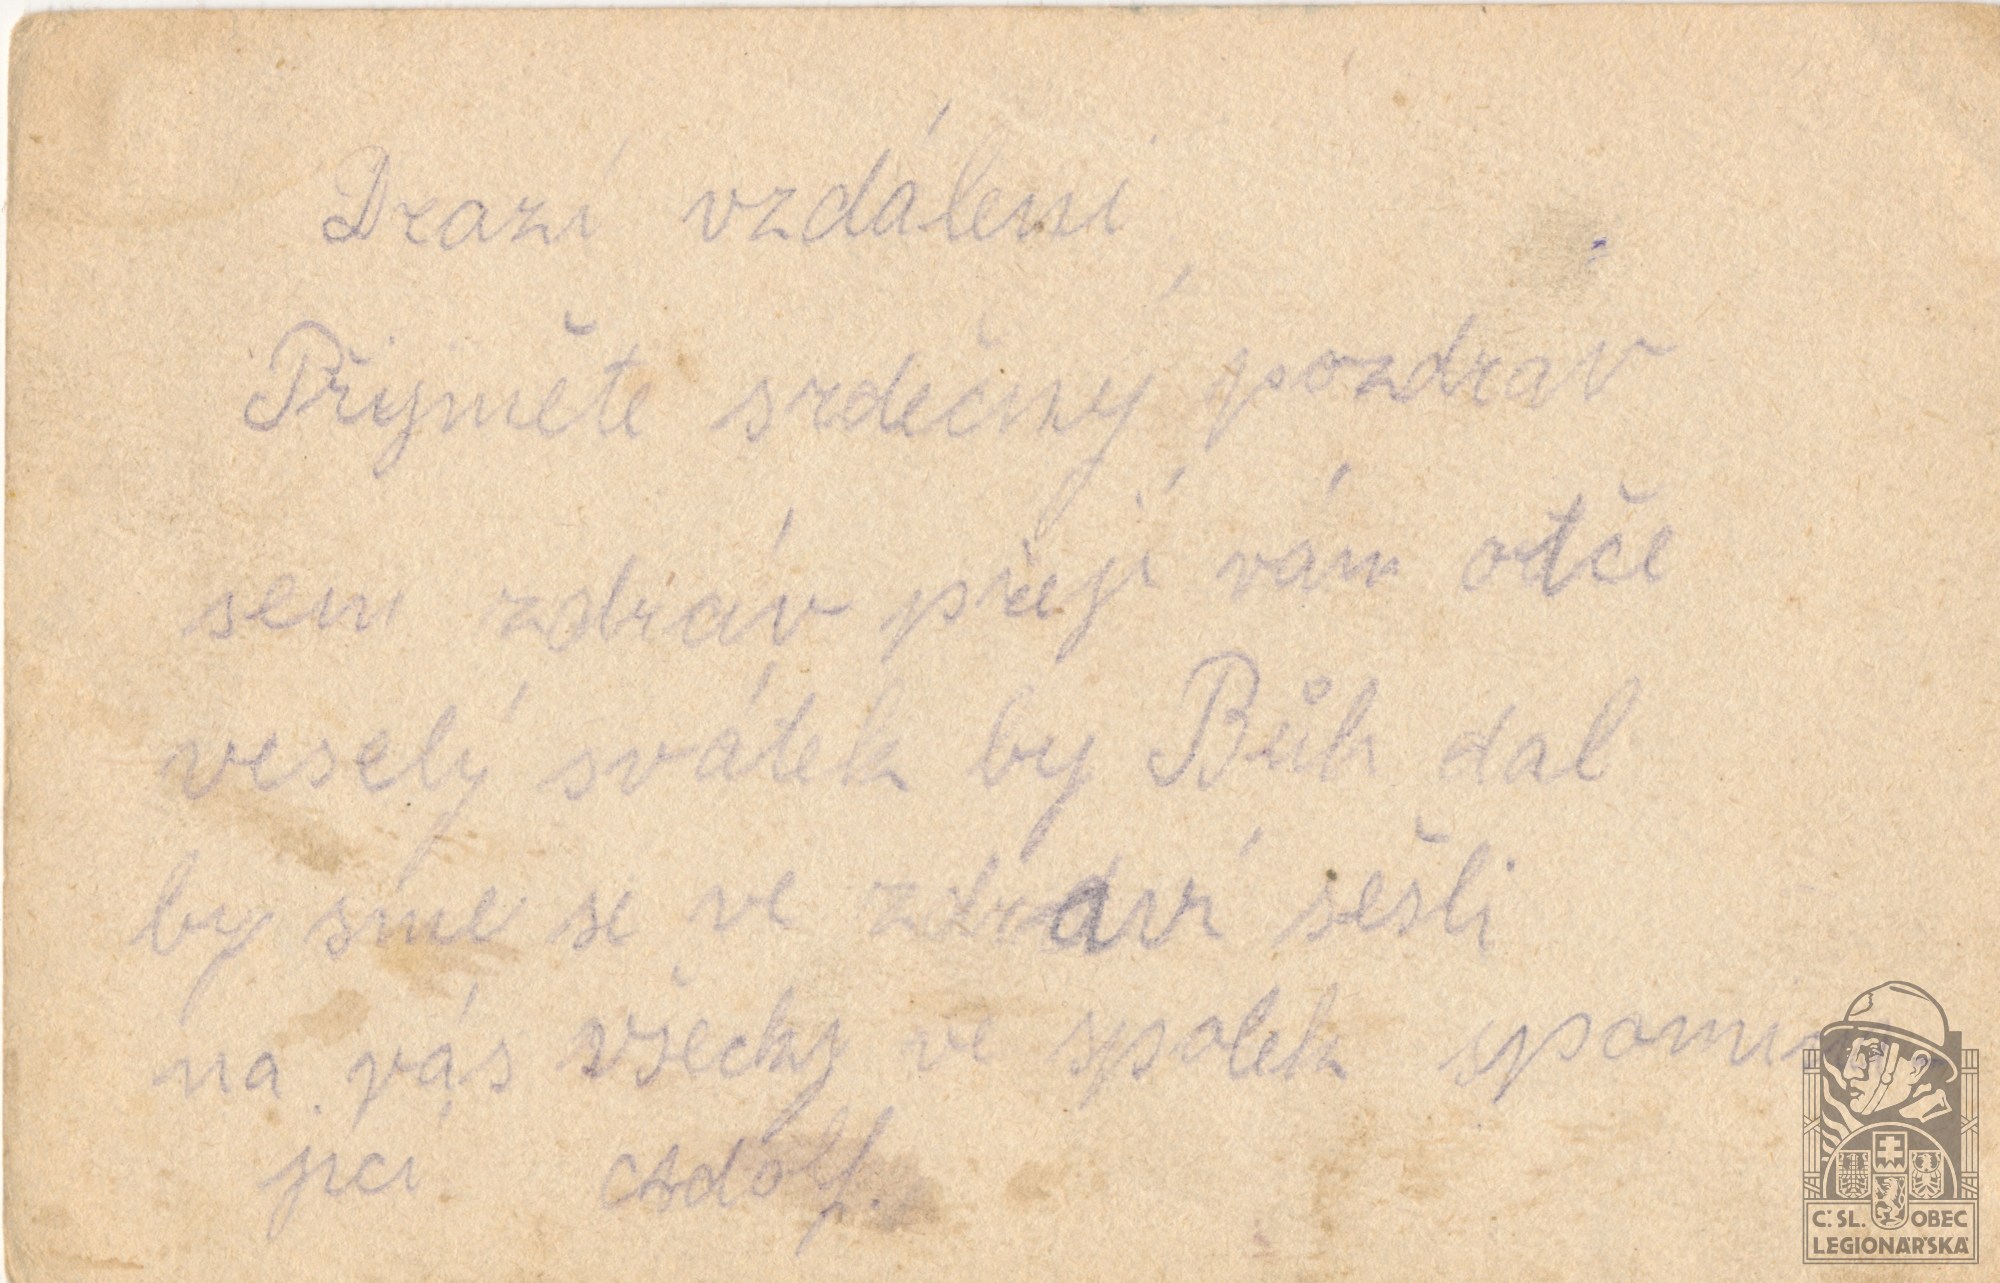 Drazí vzdálení
Přijměte srdečný pozdrav
sem zdráv přeji vám otče
veselý svátek by Bůh dal
by sme se ve zdraví sešli
na vás všecky ve spolek
jíci Adolf.
Č.SL. OBEC
LEGIONÁŘSKÁ